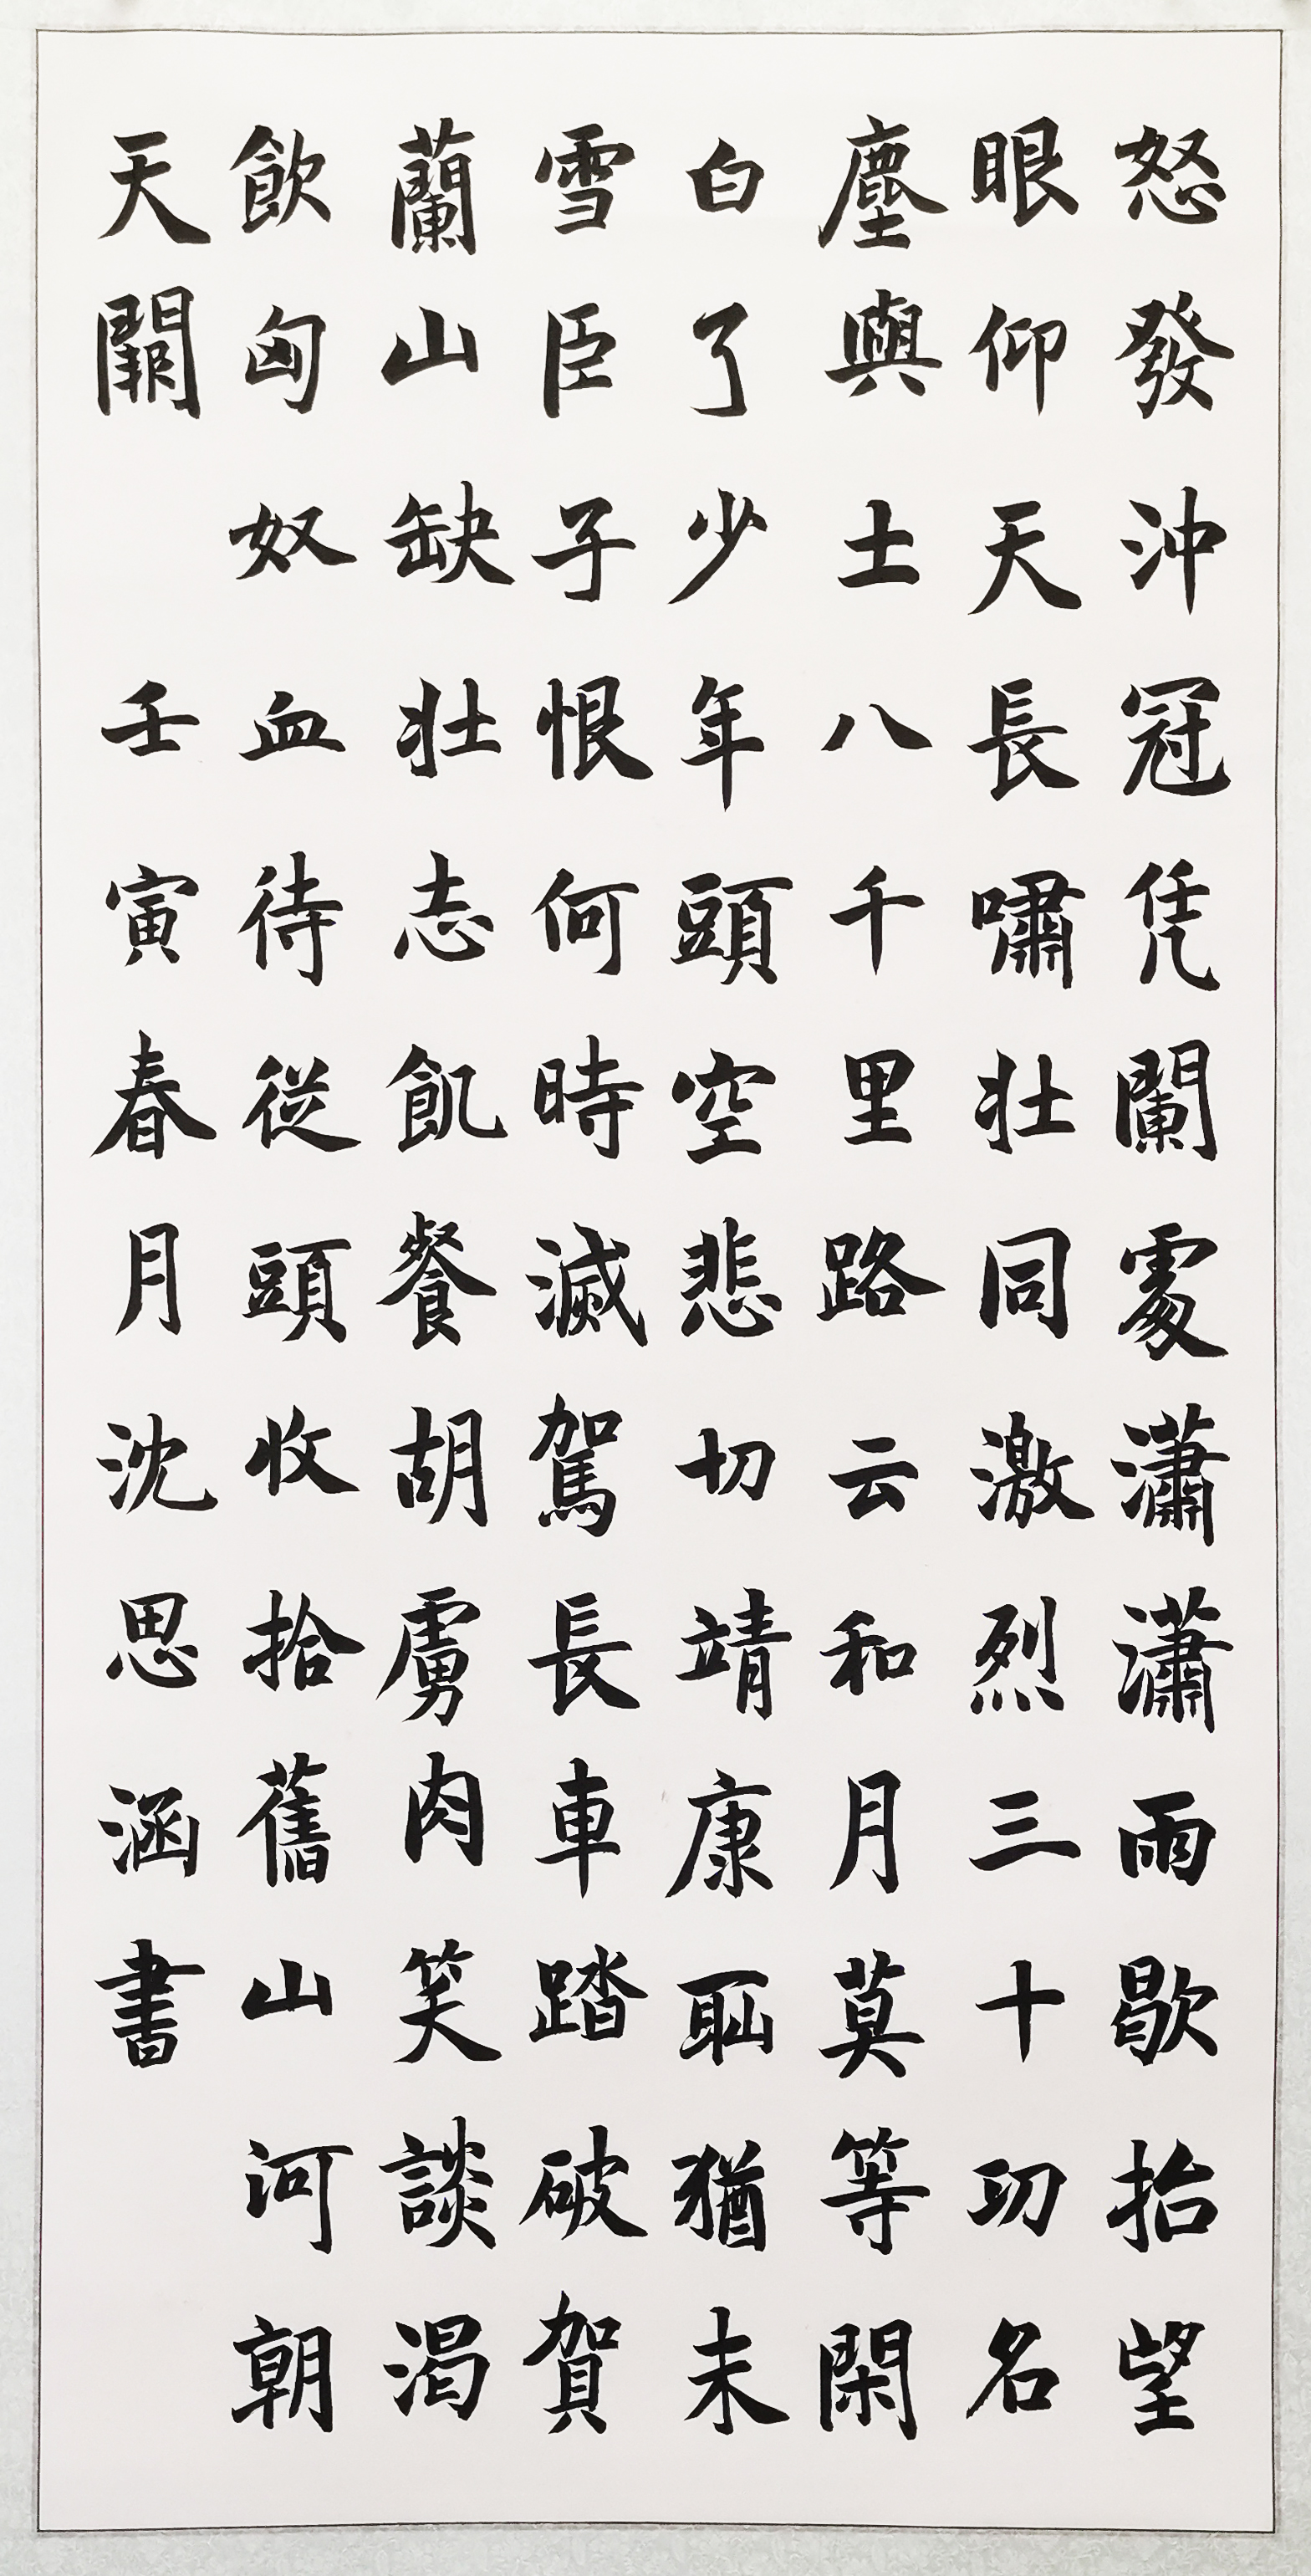 怒發沖冠凭闌處瀟瀟雨歇抬望
眼仰天長嘯壯同激烈三十功名
塵與土八千里路云和月莫等閑
白了少年頭空悲切靖康恥猶未
雪臣子恨何時滅駕長車踏破賀
蘭山缺壯志飢餐胡虜肉笑談渴
飲匈奴血待從頭收拾舊山河朝
天闕 壬寅春月沈思涵書